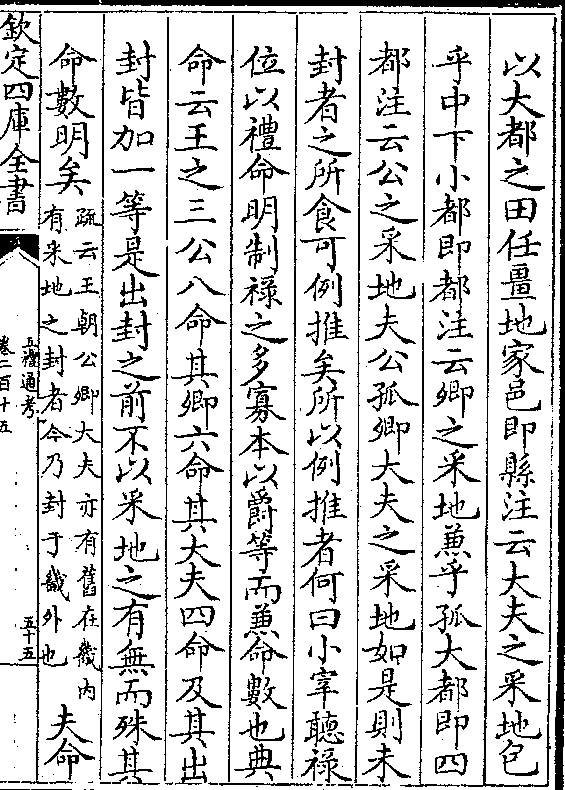 以大都之田任畺地家邑即縣注云大夫之采地包
乎中下小都即都注云卿之采地兼乎孤大都即四
都注云公之采地夫公孤卿大夫之采地如是則未
封者之所食可例推矣所以例推者何曰小宰聽祿
位以禮命明制祿之多寡本以爵等而兼命數也典
命云王之三公八命其卿六命其大夫四命及其出
封皆加一等是出封之前不以采地之有無而殊其
命數明矣疏云王朝公卿大夫亦有舊在畿内有采地之封者今乃封于畿外也夫命
欽定四庫全書
五禮通考
卷二百十五
五十五